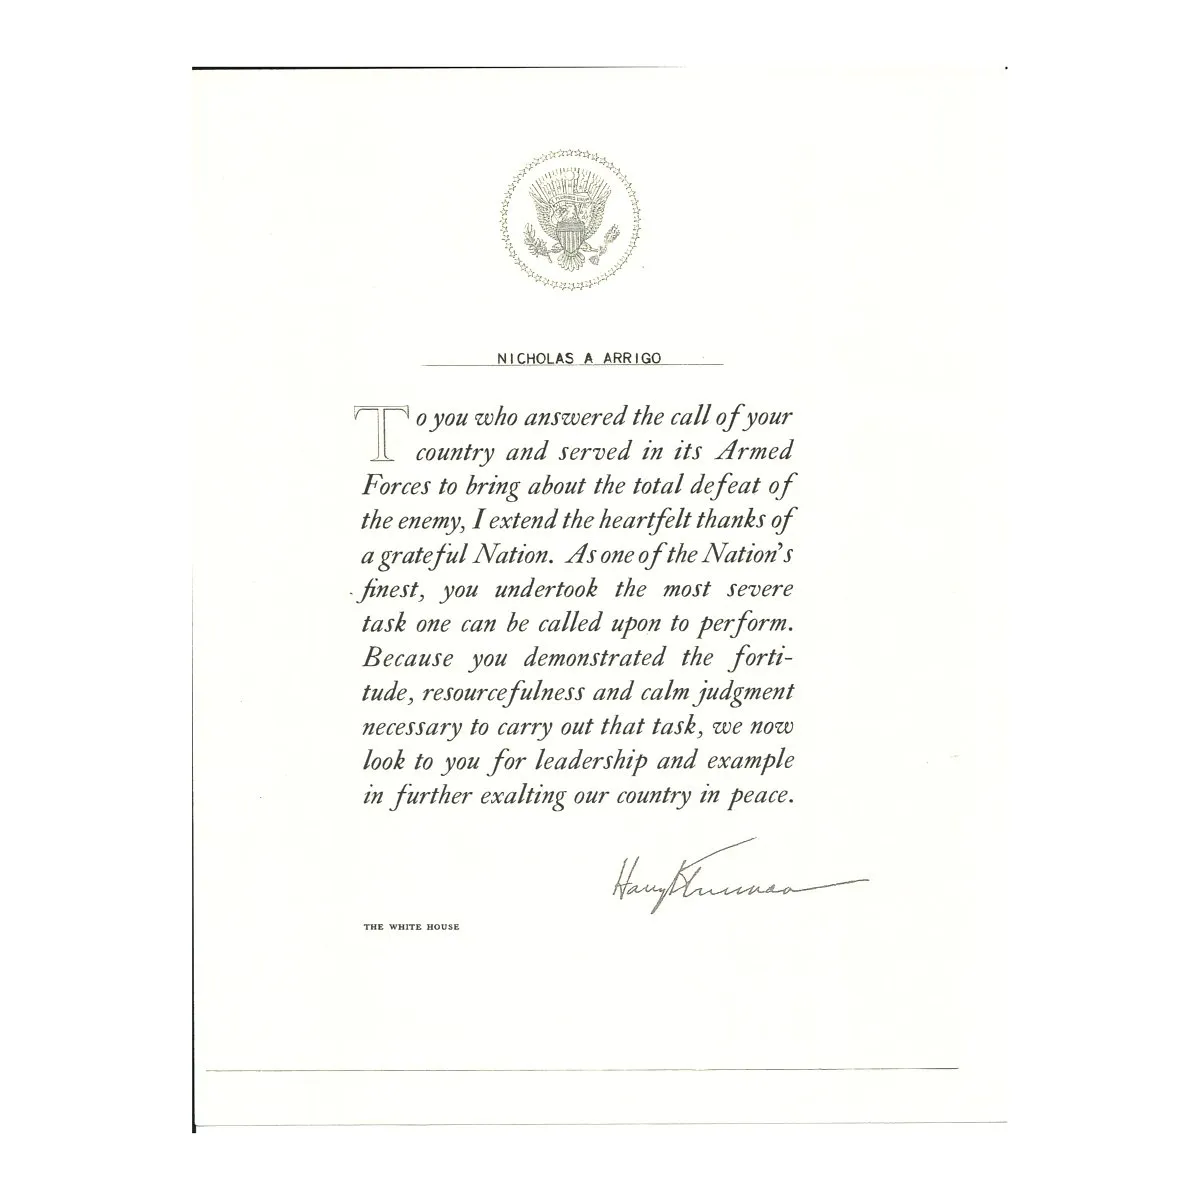 NICHOLAS A ARRIGO
To you who answered the call of your
country and served in its Armed
Forces to bring about the total defeat of
the enemy, I extend the heartfelt thanks of
a grateful Nation. As one of the Nation's
finest, you undertook the most severe
task one can be called upon to perform.
Because you demonstrated the forti-
tude, resourcefulness and calm judgment
necessary to carry out that task, we now
look to you for leadership and example
in further exalting our country in peace.
Harry S Truman
THE WHITE HOUSE